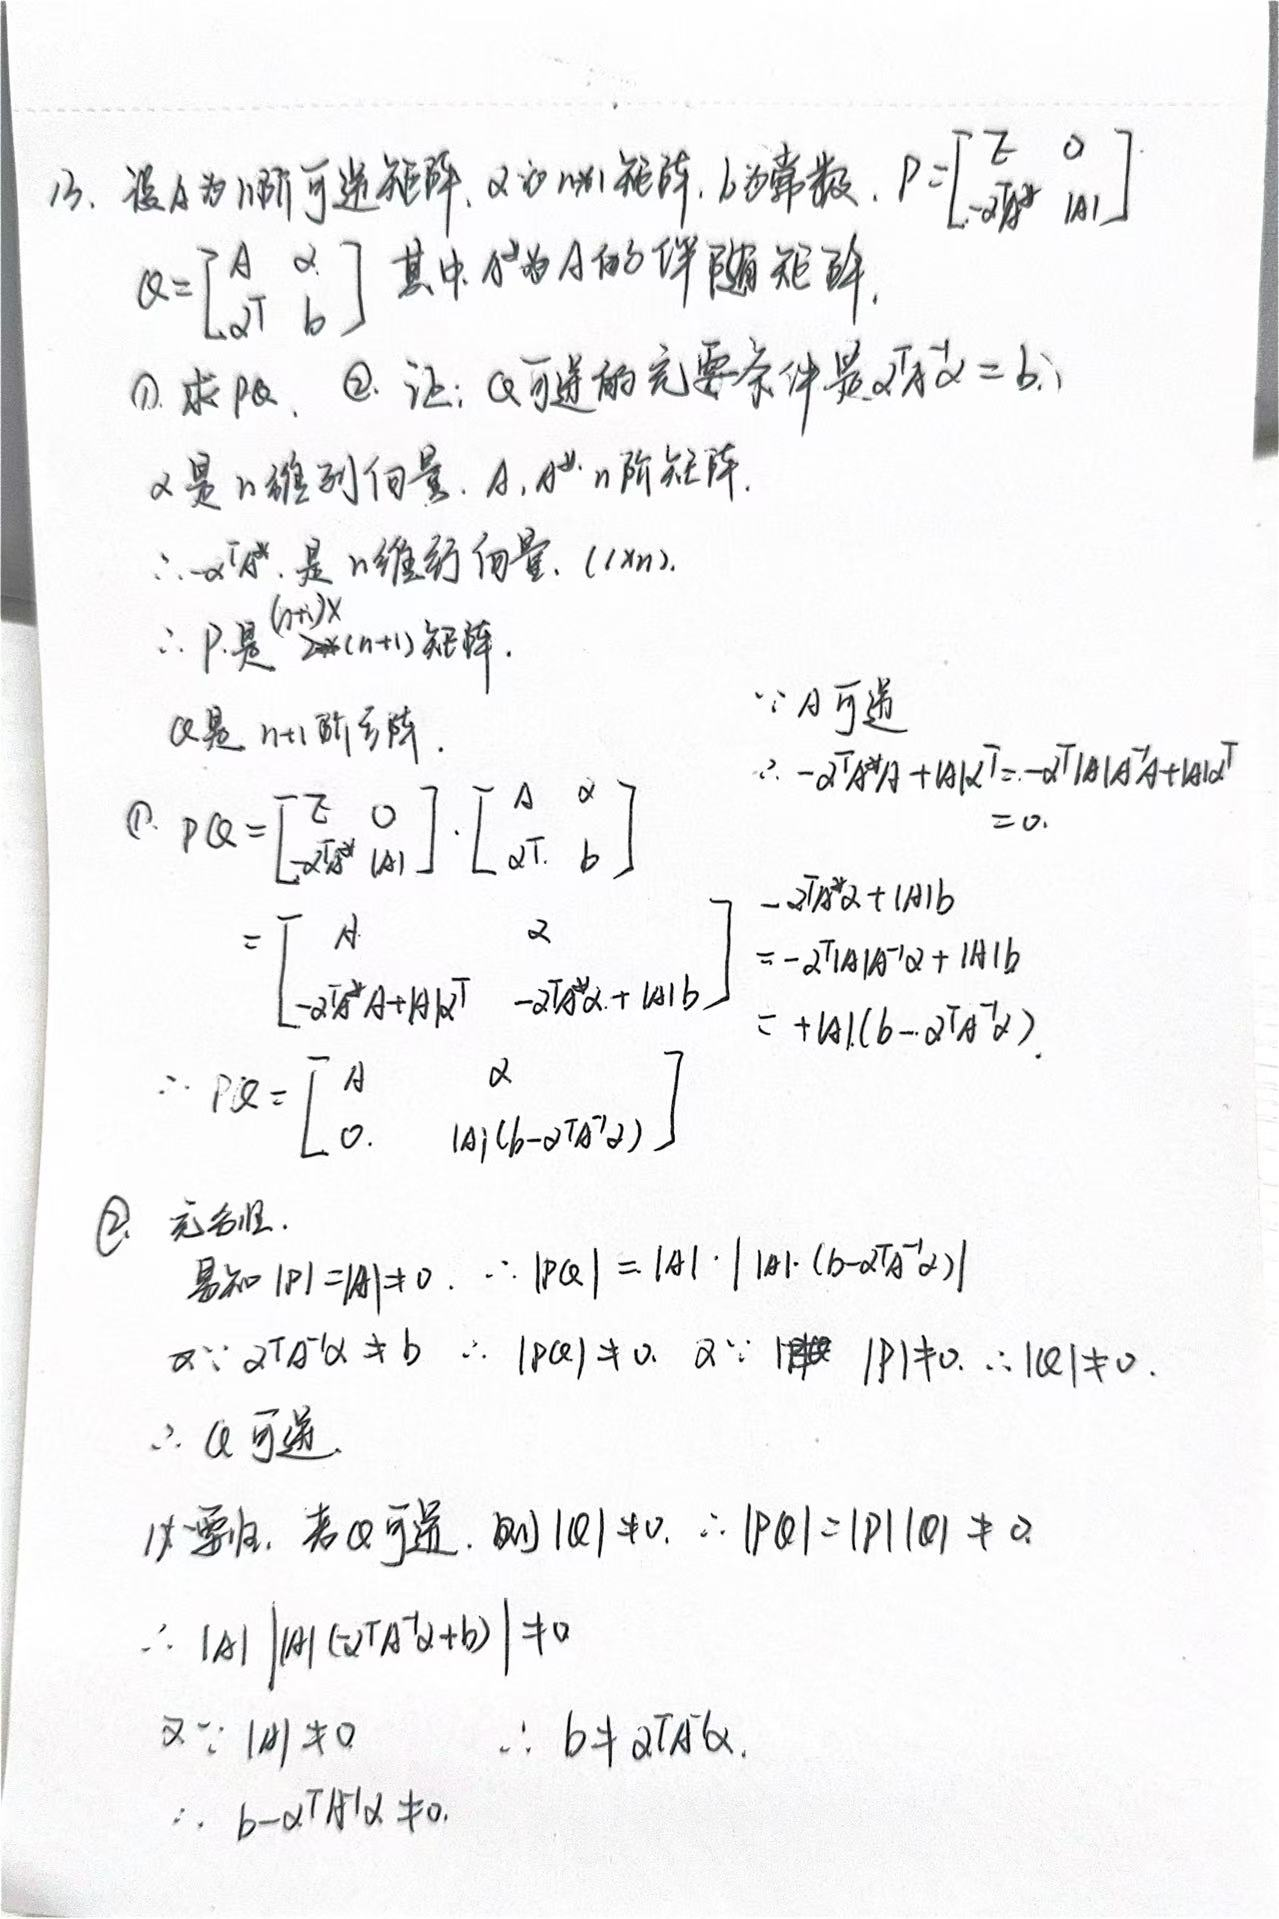 13. 设A为n阶可逆矩阵, α为n×1矩阵, b为常数. P=[E 0
-αᵀA* |A|]
Q=[A α
αᵀ b] 其中A*为A的伴随矩阵.
①. 求PQ. ②. 证: Q可逆的充要条件是αᵀA⁻¹α=b.
α是n维列向量. A, A* n阶矩阵.
∴ -αᵀA* 是n维行向量. (1×n).
∴ P是(n+1)×(n+1)矩阵.
Q是 n+1阶方阵.
①. PQ=[E 0
-αᵀA* |A|]·[A α
αᵀ b]
=[A α
-αᵀA*A+|A|αᵀ -αᵀA*α+|A|b]
∵ A可逆
∴ -αᵀA*A+|A|αᵀ=-αᵀ|A|A⁻¹A+|A|αᵀ
=0.
-αᵀA*α+|A|b
=-αᵀ|A|A⁻¹α+|A|b
=+|A|(b-αᵀA⁻¹α).
∴ PQ=[A α
0 |A|(b-αᵀA⁻¹α)]
②. 充分性.
易知|P|=|A|≠0. ∴ |PQ|=|A|·||A|·(b-αᵀA⁻¹α)|
又∵ αᵀA⁻¹α≠b ∴ |PQ|≠0. 又∵ |P|≠0. ∴|Q|≠0.
∴ Q可逆.
必要性. 若Q可逆. 则|Q|≠0. ∴ |PQ|=|P||Q|≠0.
∴ |A| ||A|(-αᵀA⁻¹α+b)|≠0
又∵ |A|≠0 ∴ b≠αᵀA⁻¹α.
∴ b-αᵀA⁻¹α≠0.